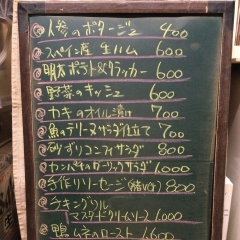 人参のポタージュ 400
スペイン産 生ハム 600
明太ポテト&クラッカー 600
野菜のキッシュ 600
カキのオイル漬け 700
魚のテリーヌサラダ仕立て 700
砂ずりコンフィサラダ 800
カンパチのガーリックサラダ 1,000
手作りソーセージ 800
チキングリル
マスタードクリームソース 1,000
鴨ムネのロースト 1,600